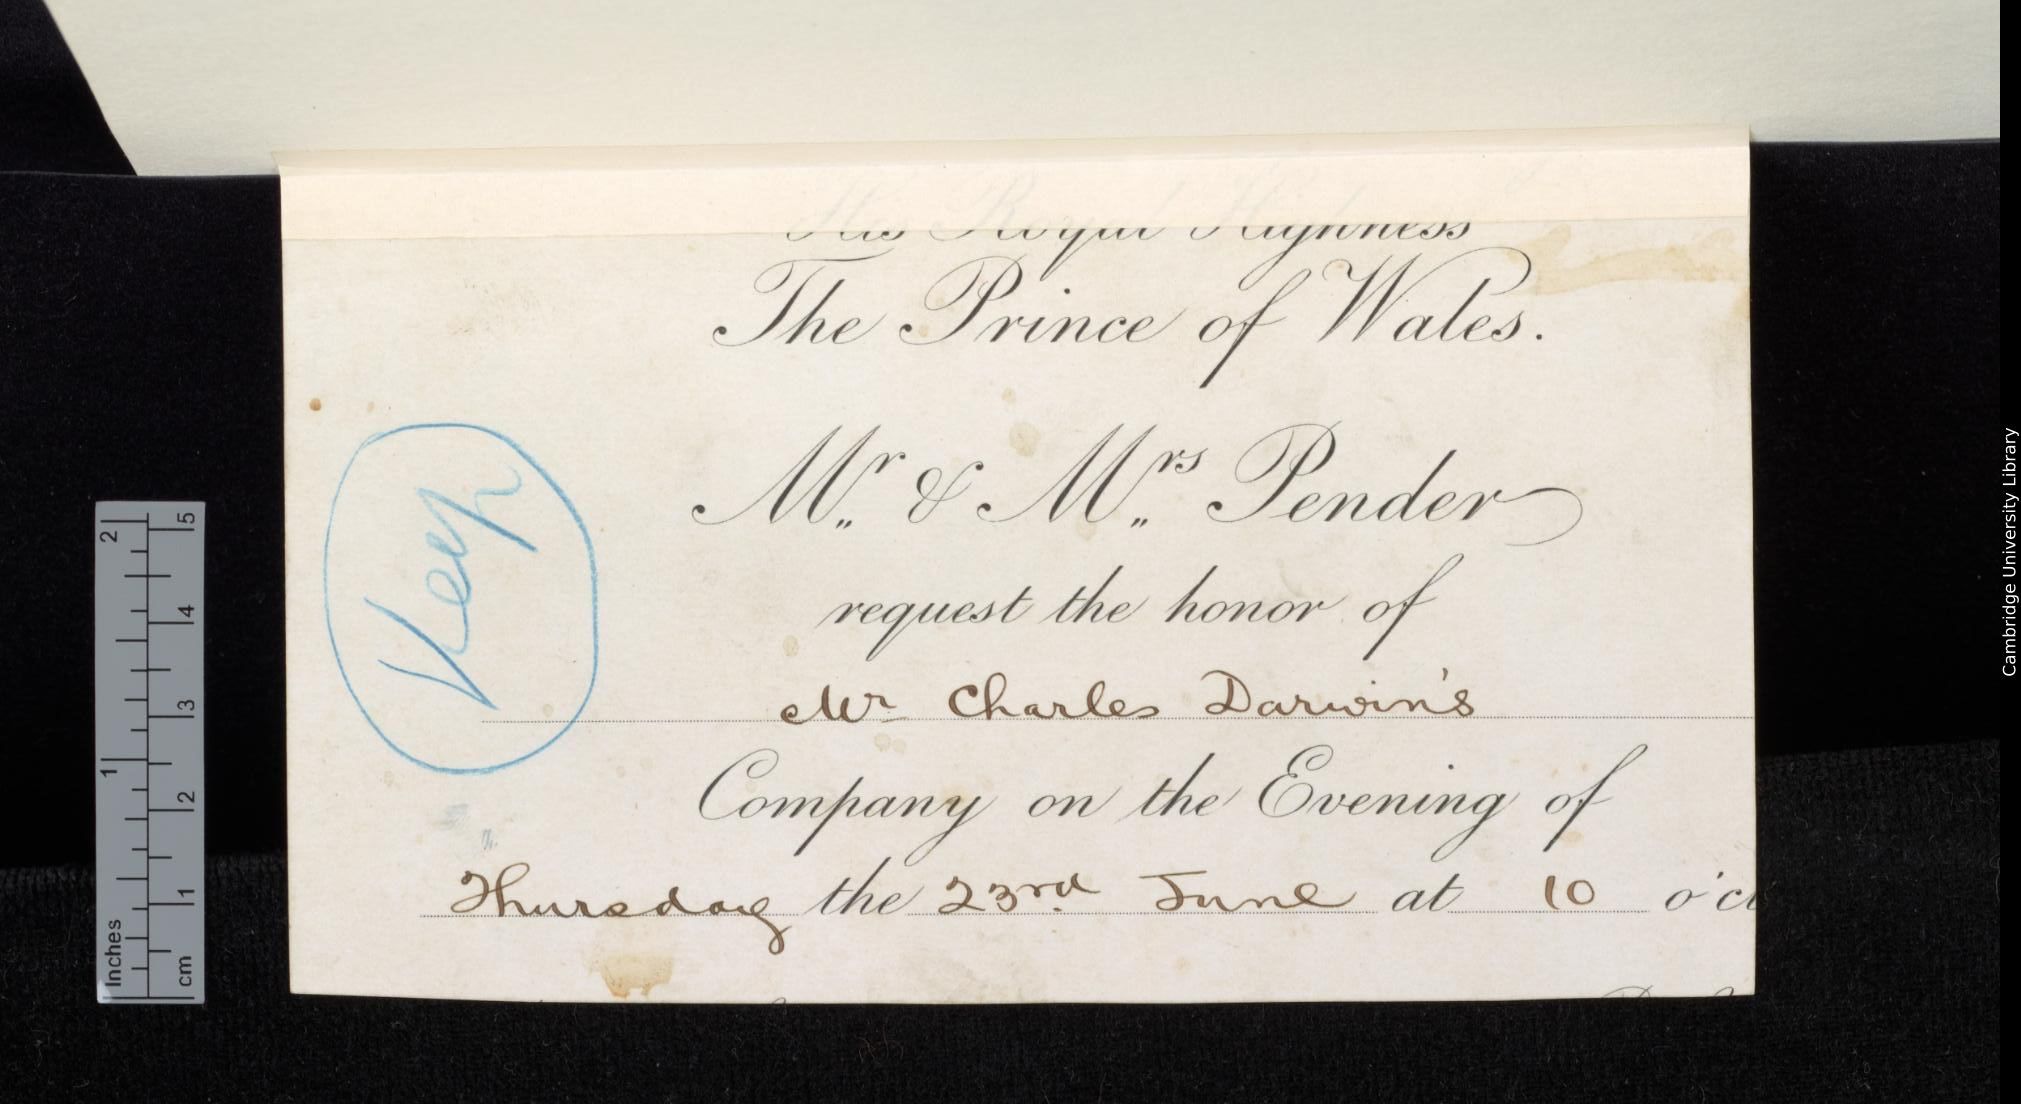 His Royal Highness
The Prince of Wales.
Mr. & Mrs. Pender
request the honor of
Mr Charles Darwin's
Company on the Evening of
Thursday the 23rd June at 10 o'cl
Keep
Inches
1
2
cm
1
2
3
4
5
Cambridge University Library